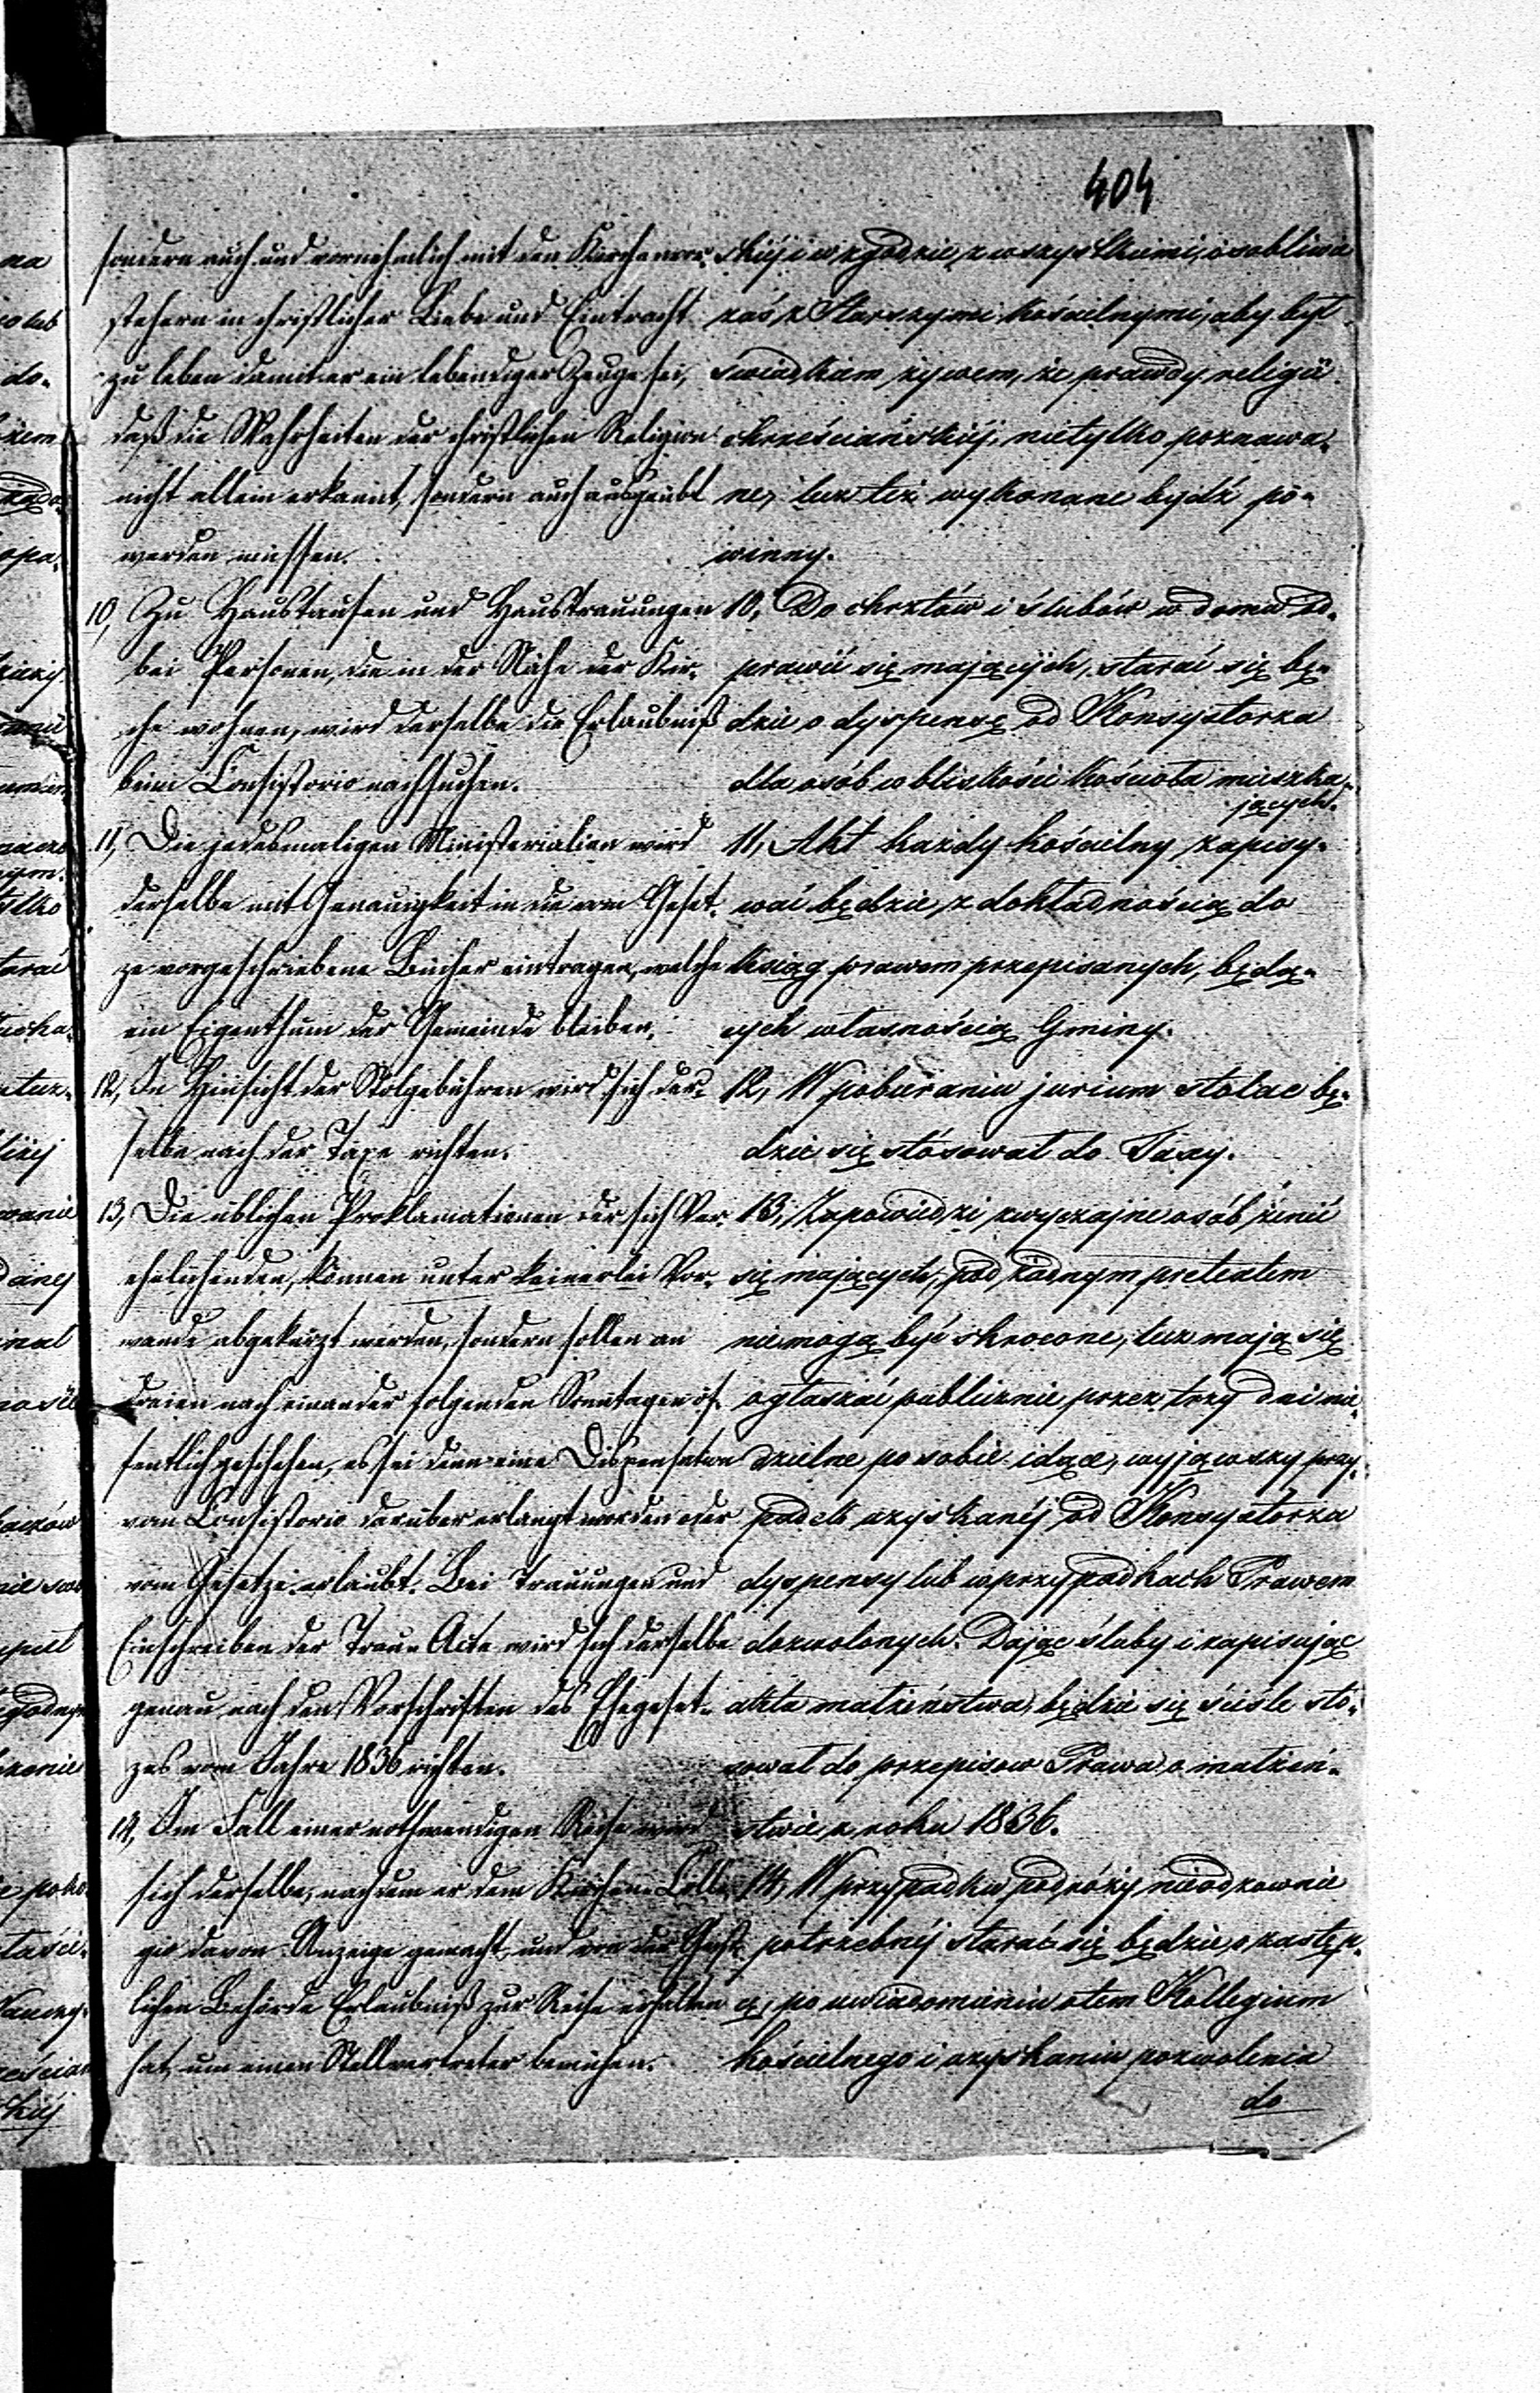 404
sondern auch und vornehmlich mit den Kirchenvor-
stehern in christlicher Liebe und Eintracht
zu leben damit er ein lebendiger Zeuge sei,
daß die Wahrheiten der christlichen Religion
nicht allein erkannt, sondern auch ausgeübt
werden müssen.
10, Zu Haustaufen und Haustrauungen
bei Personen, die in der Nähe der Kir-
che wohnen, wird derselbe die Erlaubniß
beim Consistorio nachsuchen.
11, Die jedesmaligen Ministerialien wird
derselbe mit Genauigkeit in die vom Geset-
ze vorgeschriebene Bücher eintragen, welche
ein Eigenthum der Gemeinde bleiben.
12, In Hinsicht der Stolgebühren wird sich der-
selbe nach der Taxe richten.
13, Die üblichen Proklamationen der sich Ver-
ehelichenden, können unter keinerlei Vor-
wande abgekürzt werden, sondern sollen an
dreien nach einander folgenden Sonntagen öf-
fentlich geschehen, es sei denn eine Dispensation
vom Consistorio darüber erlangt worden oder
vom Gesetze erlaubt. Bei Trauungen und
Einschreiben der Trau-Acte wird sich derselbe
genau nach den Vorschriften des Ehegeset-
zes vom Jahre 1836 richten.
14, Im Fall einer nothwendigen Reise wird
sich derselbe, nachdem er dem Kirchen-Colle-
gio davon Anzeige gemacht, und von der
lichen Behörde Erlaubniß zur Reise erhalten
hat, um einen Stellvertreter bemühen.
skiéj i w zgodzie z wszystkiemi, osobliwie
zaś z Starszymi kościelnymi, aby był
swiadkiem żywem, że prawdy religii
chrześciańskiéj, nietylko poznawa-
ne, lecz też wykonane bydź po-
winny.
10, Do chrztów i ślubów w domu od-
prawić się mających, starać się bę-
dzie o dyspensę od Konsystorza
dla osób w bliskości kościoła mieszka-
jących.
11, Akt każdy kościelny zapisy-
wać będzie z dokładnością do
Ksiąg prawem przepisanych, będą-
cych własnością Gminy.
12, W pobieraniu jurium stolae bę-
dzie się stósował do Taxy.
13, Zapowiedzi zwyczajne osób żenić
się mających, pod żadnym pretextem
niemogą być skrocone, lecz mają się
ogłaszać publicznie przez trzy dni nie-
dzielne po sobie idące, wyjąwszy przy-
padek uzyskanéj od Konsystorza
dyspensy lub w przypadkach Prawem
dozwolonych. Dając śluby i zapisując
akta małżeństwa, będzie się ściśle stó-
sował do przepisow Prawa o małżeń-
stwie z roku 1836.
14, W przypadku podróży nieodzownie
potrzebnéj starać się będzie o zastęp-
cę, po uwiadomieniu otem Kollegium
kościelnego i uzyskaniu pozwolenia
do